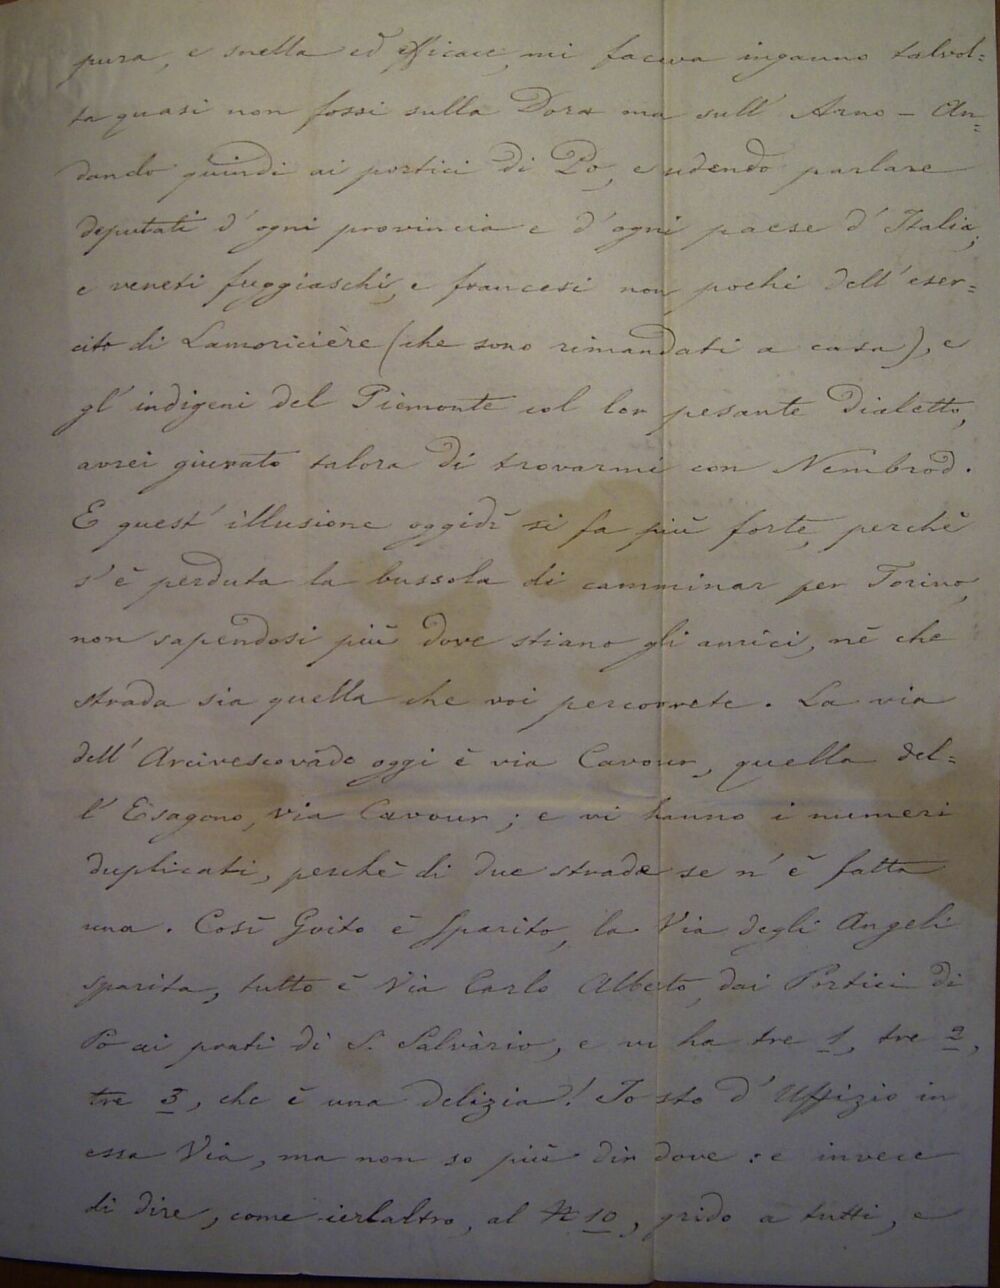 pura, e snella ed efficace, mi faceva inganno talvol=
ta quasi non fossi sulla Dora ma sull' Arno - An=
dando quindi ai portici di Po, e udendo parlare
deputati d' ogni provincia e d' ogni paese d' Italia,
e veneti fuggiaschi, e francesi non pochi dell' eser=
cito di Lamoricière (che sono rimandati a casa), e
gl' indigeni del Piemonte col lor pesante dialetto,
avrei giurato talora di trovarmi con Nembrod.
E quest' illusione oggidì si fa più forte, perchè
s' è perduta la bussola di camminar per Torino,
non sapendosi più dove stiano gli amici, nè che
strada sia quella che voi percorrete. La via
dell' Arcivescovado oggi è via Cavour, quella del=
l' Esagono, via Cavour; e vi hanno i numeri
duplicati, perchè di due strade se n' è fatta
una. Così Goito è sparito, la Via degli Angeli
sparita, tutto è Via Carlo Alberto, dai Portici di
Pò ai prati di S. Salvario, e vi ha tre 1, tre 2,
tre 3, che è una delizia! Io sto d' Uffizio in
essa Via, ma non so più dir dove: e invece
di dire, come ierlaltro, al N 10, grido a tutti, e